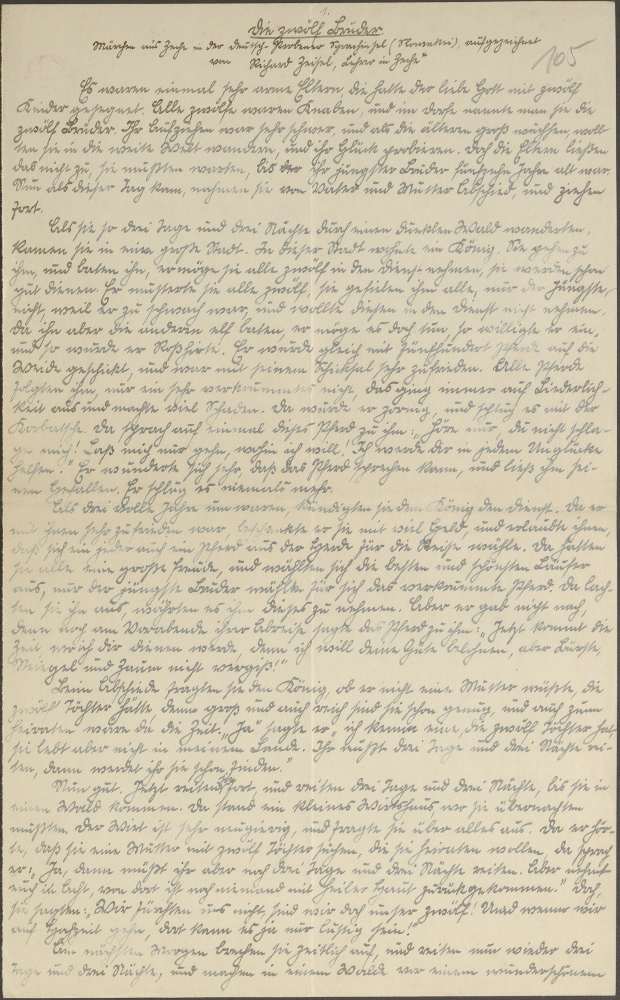 1.
Die zwölf Brüder.
Märchen aus Zeche in der deutsch-Probener Sprachinsel (Slowakei), aufgezeichnet
von Richard Zeisel, Lehrer in Zeche
105
Es waren einmal sehr arme Eltern, die hatte der liebe Gott mit zwölf
Kinder gesegnet. Alle zwölfe waren Knaben, und im Dorfe nannte man sie die
zwölf Brüder. Ihr Aufziehen war sehr schwer, und als die älteren groß wuchsen, woll-
ten sie in die weite Welt wandern, und ihr Glück probieren. Doch die Eltern ließen
das nicht zu, sie mußten warten, bis der ihr jüngster Bruder fünfzehn Jahre alt war.
Nun als dieser Tag kam, nahmen sie von Vater und Mutter Abschied, und ziehen
fort.
Als sie so drei Tage und drei Nächte durch einen dunklen Wald wanderten,
kamen sie in eine große Stadt. In dieser Stadt wohnte ein König. Sie gehen zu
ihm, und baten ihn, er möge sie alle zwölf in den Dienst nehmen, sie werden schon
gut dienen. Er musterte sie alle zwölf, sie gefielen ihm alle, nur der Jüngste,
nicht, weil er zu schwach war, und wollte diesen in den Dienst nicht nehmen.
Da ihn aber die anderen elf baten, er möge es doch tun, so willigte er ein,
und so wurde er Roßhirte. Er wurde gleich mit fünfhundert Pferde auf die
Weide geschickt, und war mit seinem Schicksal sehr zufrieden. Alle Pferde
folgten ihm, nur ein sehr verkrummtes nicht, das ging immer auf Liederlich-
keit aus und machte viel Schaden. Da wurde er zornig, und schlug es mit der
Korbatsche. Da sprach auf einmal dieses Pferd zu ihm: „Höre nur, du nicht schla-
ge mich! Laß mich nur gehn, wohin ich will! Ich werde dir in jedem Unglücke
helfen." Er wunderte sich sehr, daß das Pferd sprechen kann, und ließ ihm sei-
nen Gefallen. Er schlug es niemals mehr.
Als drei volle Jahre um waren, kündigten sie dem König den Dienst. Da er
mit ihnen sehr zufrieden war, beschenkte er sie mit viel Geld, und erlaubte ihnen,
daß sich ein jeder auch ein Pferd aus der Herde für die Reise wähle. Da hatten
sie alle eine große Freude, und wählten sich die besten und schönsten Läufer
aus, nur der jüngste Bruder wählte für sich das verkrummte Pferd. Da lach-
ten sie ihn aus, wehrten es ihm dieses zu nehmen. Aber er gab nicht nach,
denn noch am Vorabende ihrer Abreise sagte das Pferd zu ihm: „Jetzt kommt die
Zeit wo ich dir dienen werde, denn ich will deine Güte belohnen, aber Bürste,
Striegel und Zaum nicht vergeß!"
Beim Abschiede fragten sie den König, ob er nicht eine Mutter wüßte, die
zwölf Töchter hätte, denn groß und auch reich sind sie schon genug, und auch zum
heiraten wäre da die Zeit. „Ja" sagte er „ich kenne eine, die zwölf Töchter hat,
sie lebt aber nicht in meinem Lande. Ihr müßt drei Tage und drei Nächte rei-
ten, dann werdet ihr sie schon finden."
Nun gut. Jetzt reiten fort, und reiten drei Tage und drei Nächte, bis sie in
einen Wald kommen. Da stand ein kleines Wirtshaus wo sie übernachten
mußten. Der Wirt ist sehr neugierig, und fragte sie über alles aus. Da er hör-
te, daß sie eine Mutter mit zwölf Töchter suchen, die sie heiraten wollen, da sprach
er: „Ja, dann müßt ihr aber noch drei Tage und drei Nächte reiten. Aber nehmt
euch in Acht, von dort ist noch niemand mit heiler Haut zurückgekommen." Doch,
sie sagten: „Wir fürchten uns nicht, sind wir doch unser zwölf! Und wenn wir
auf Hochzeit gehn, dort kann es ja nur lustig sein!"
Am nächsten Morgen brechen sie zeitlich auf, und reiten nun wieder drei
Tage und drei Nächte, und machen in einem Walde vor einem wunderschönem